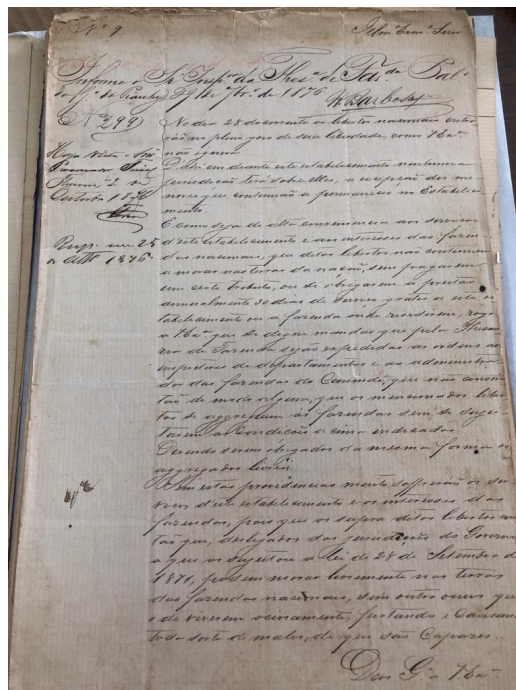 Nº 9
Illmo Exmo Senr
Informe o Sr Inspor da Thesa de Fazda Pala
do Go do Piauhy 29 de 7bro de 1876
Barbosa
Nº 299
No dia 28 do corrente os libertos nacionaes entra-
rão no pleno goso de sua liberdade, como VExa
não ignora.
D'ahi em diante este estabelecimento nenhuma
jurisdicção terá sobre elles, a excepção dos me-
nores que continuão a permanecer no Estabeleci-
mento.
E como seja de alta conveniencia aos serviços
d'este estabelecimento e aos interesses das fazen-
das nacionaes, que ditos libertos não continuem
a morar nas terras da nação, sem pagarem
um certo tributo, ou se obrigarem a prestar
annualmente dias de serviço gratis a este es-
tabelecimento ou a fazenda onde residirem, rogo
a VExa que se digne mandar que pela Thesou-
raria de Fazenda sejão expedidas as ordens aos
inspectores de departamentos e ao administra-
dor das fazendas de Canindé, que não consin-
tão de modo algum, que os mencionados liber-
tos se aggreguem ás fazendas sem se sujei-
tarem a condição a cima indicada.
Devendo serem obrigados da mesma forma os
aggregados livres.
Sem estas providencias muito soffrerão os ser-
viços d'este estabelecimento e os interesses das
fazendas, pois que os supra ditos libertos en-
tão que, desligados da jurisdicção do Governo
a que os sujeitou a Lei de 28 de Setembro de
1871, podem morar livremente nas terras
das fazendas nacionaes, sem outro onus que
o de viverem ociosamente, furtando e causando
toda sorte de males, de que são capazes.
Deos Ge a VExa
Haja vista o Sor
Procurador Fiscal
2 de
Outubro 1876
Resp. em 25
de 1876